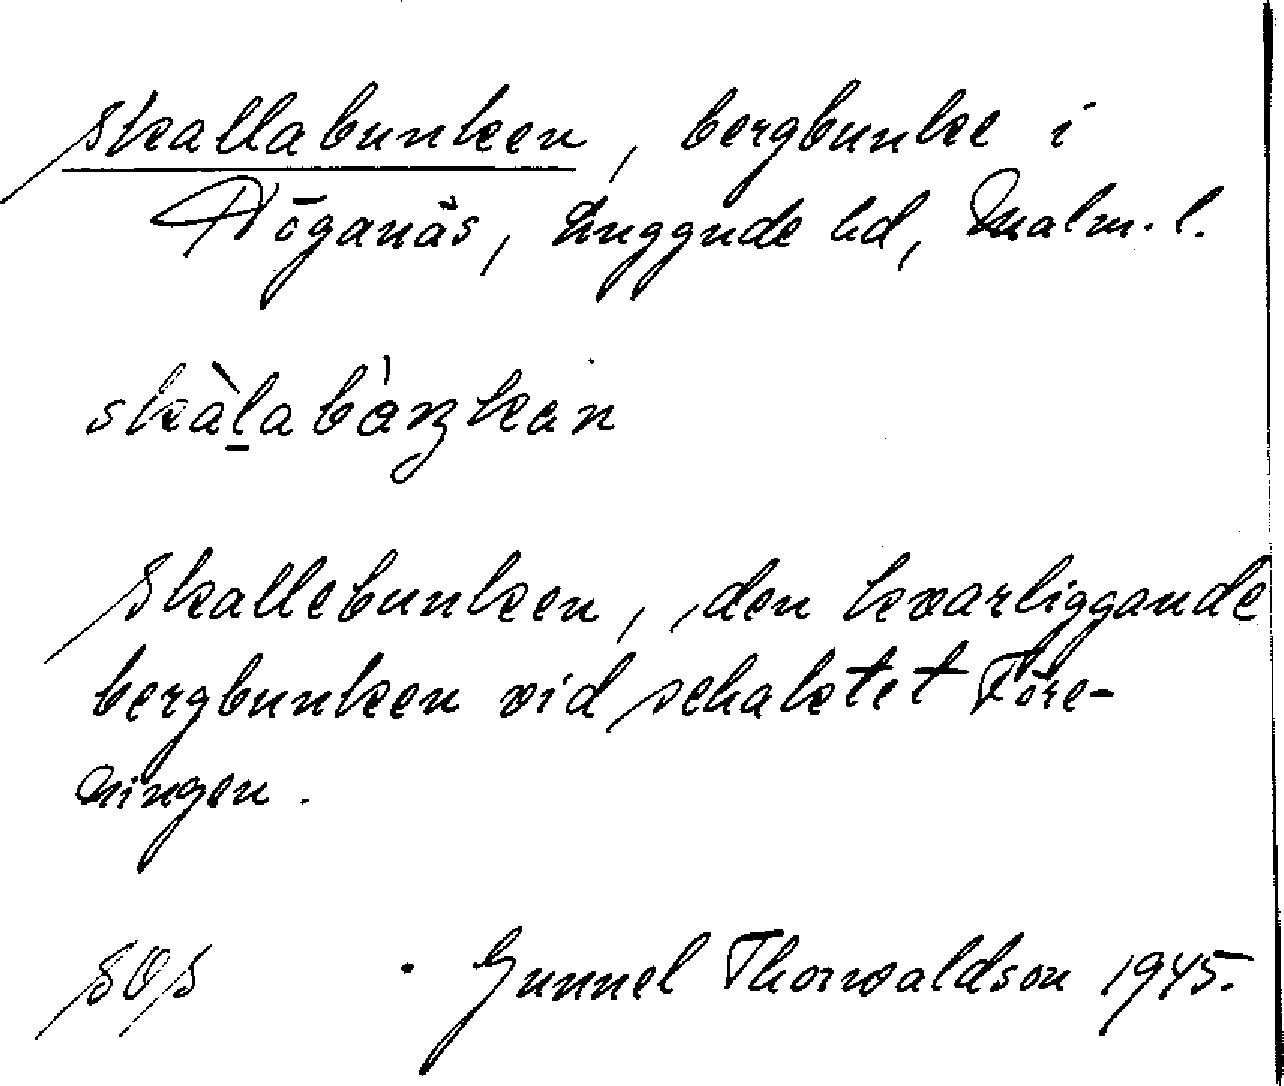 Skallabunken, bergbunke i
Höganäs, Luggude hd, Malm. l.
Skallebunken, den kvarliggande
bergbunken vid schaktet Före-
ningen.
Gunnel Thorwaldson 1945.